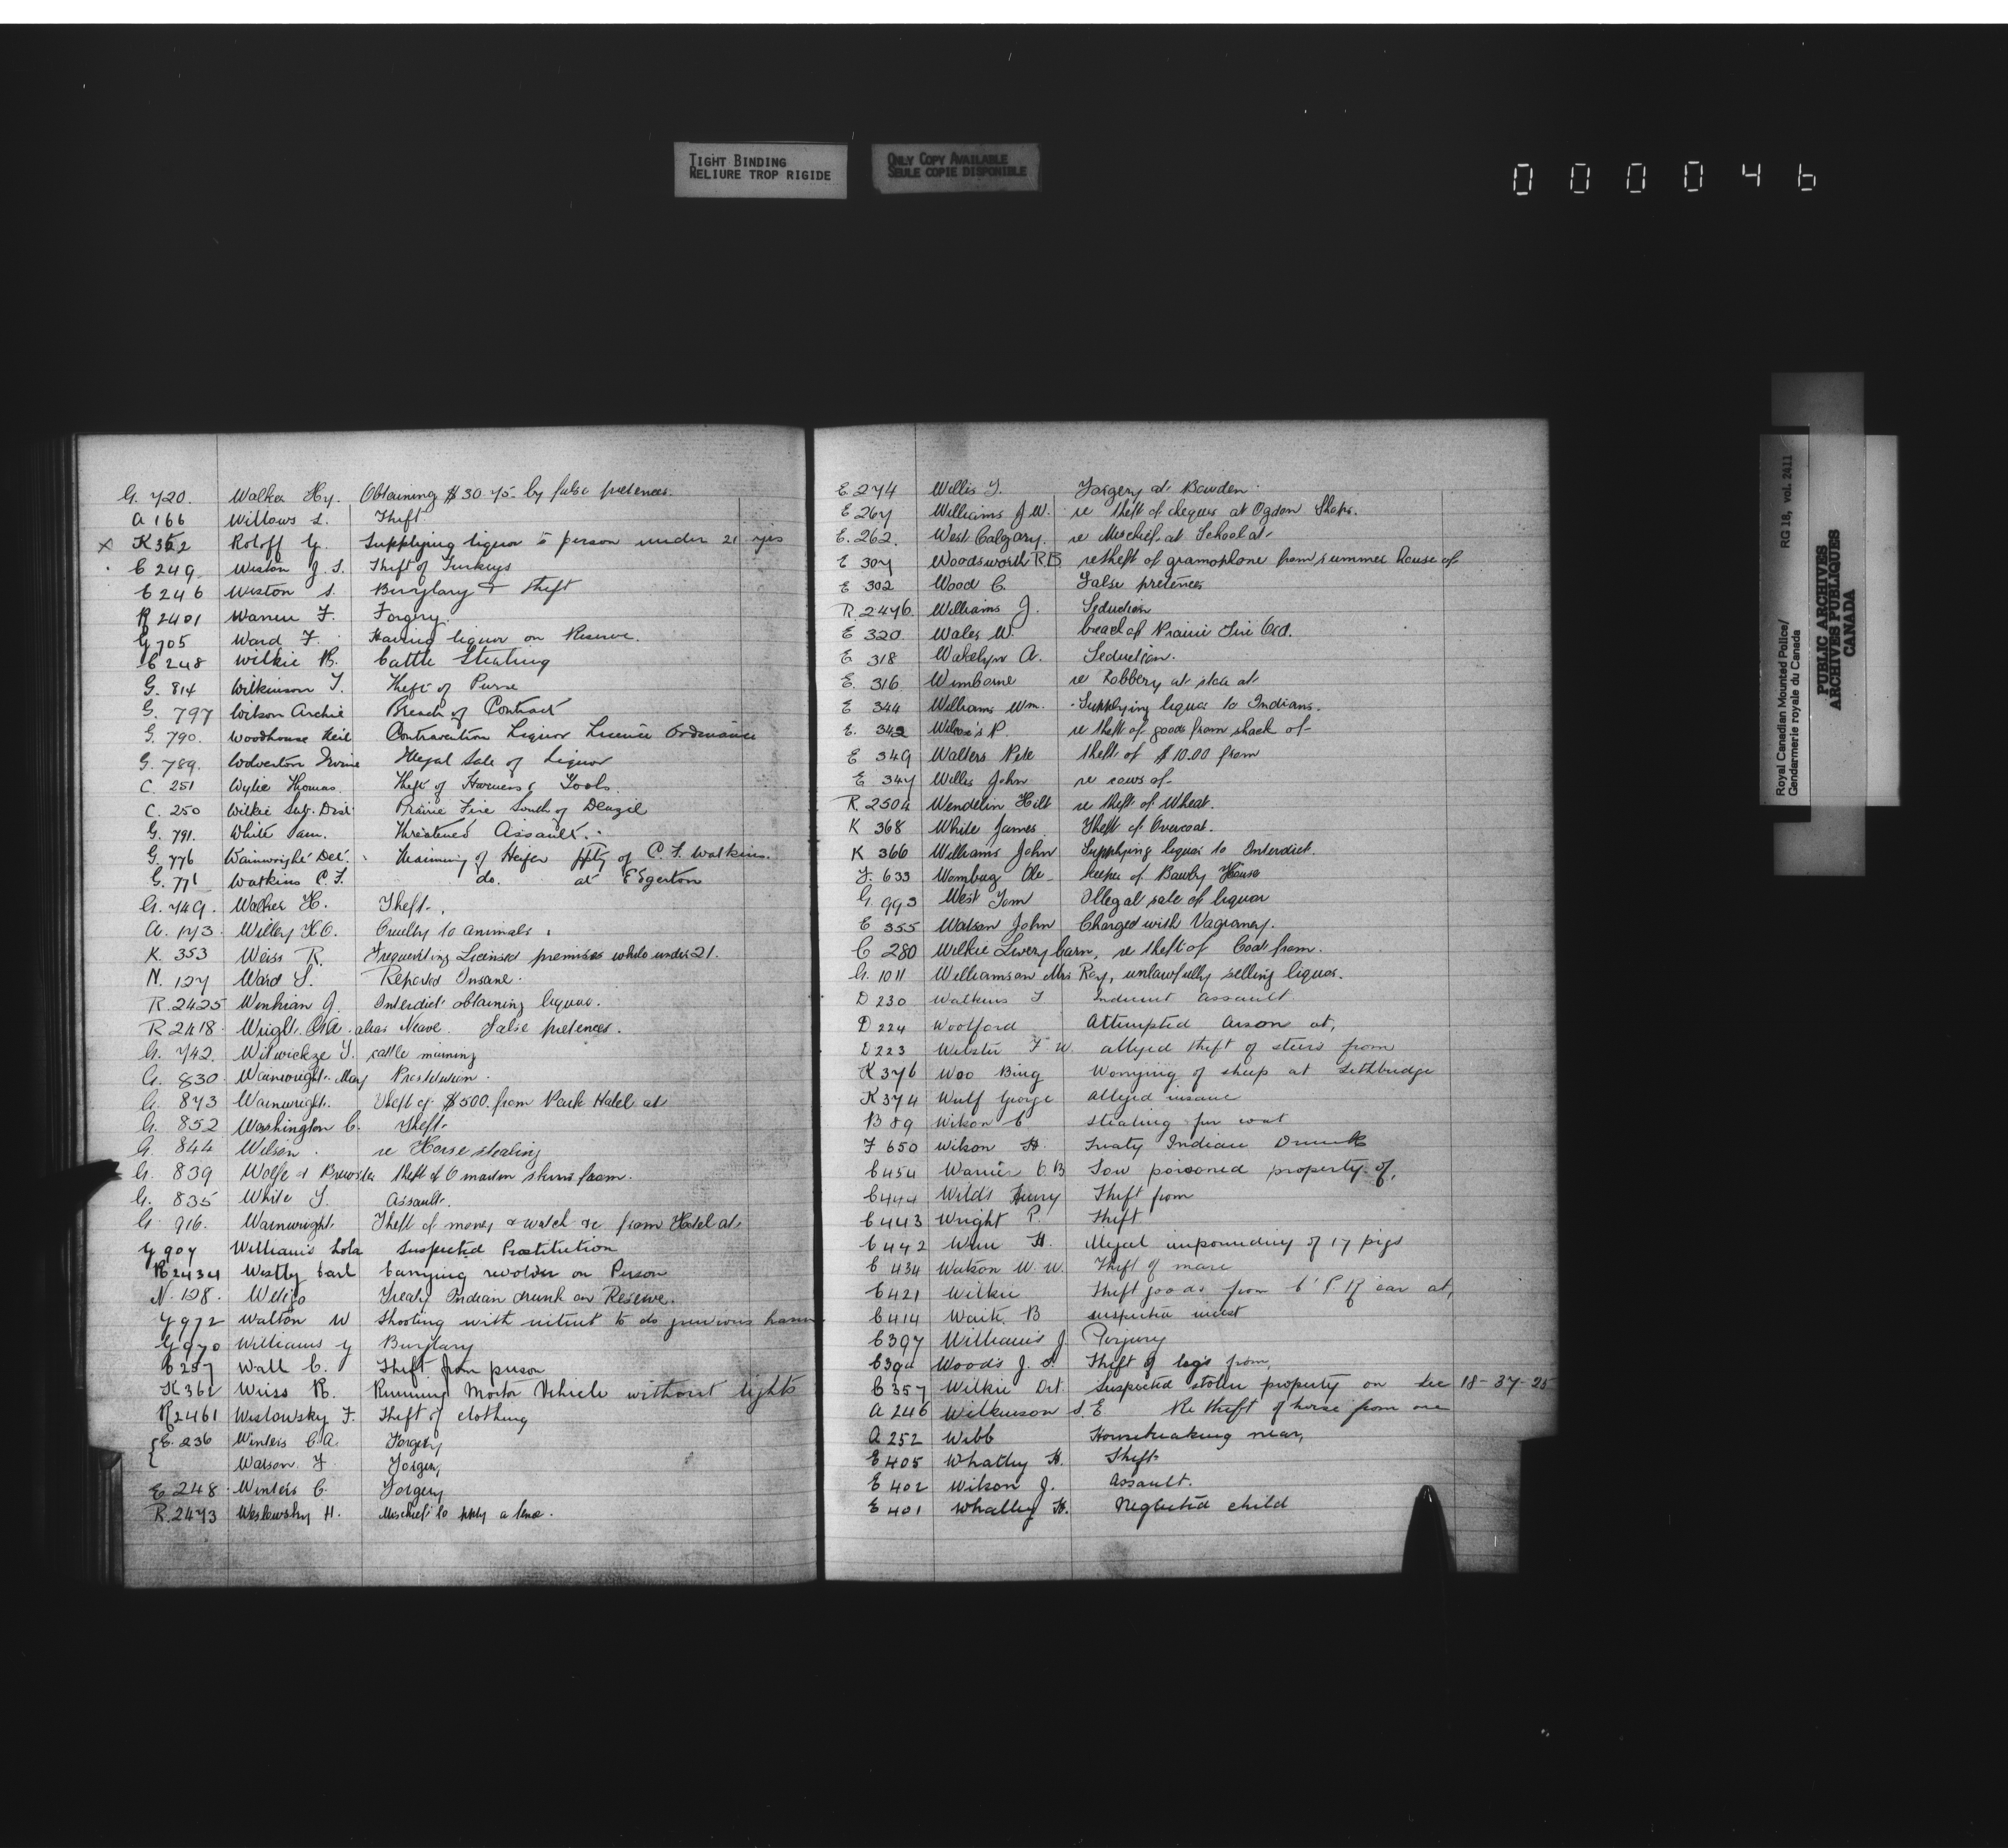 TIGHT BINDING
RELIURE TROP RIGIDE
ONLY COPY AVAILABLE
SEULE COPIE DISPONIBLE
000046
Royal Canadian Mounted Police/ RG 18, vol. 2411
Gendarmerie royale du Canada
PUBLIC ARCHIVES
ARCHIVES PUBLIQUES
CANADA
G. 720. Walker Hy. Obtaining $30.75 by false pretences.
A 166 Willows S. Theft
x K 362 Roloff G. Supplying liquor to person under 21 yrs
C 249 Weston J. S. Theft of Turkeys
C 246 Weston S. Burglary & theft
R 2401 Warren F. Forgery.
G 705 Ward F. Having liquor on Reserve.
C 248 Wilkie B. Cattle Stealing
G. 814 Wilkinson T. Theft of Purse
G. 797 Wilson Archie Breach of Contract
G. 790. Woodhouse Neil Contravention Liquor Licence Ordinance
G. 789. Wolverton Irvine Illegal Sale of Liquor
C. 251 Wylie Thomas. Theft of Harness & Tools.
C. 250 Wilkie Sub. Dist Prairie Fire South of Denzil
G. 791. White Sam. Threatened Assault.
G. 776 Wainwright Det. Maiming of Heifer ppty of C. F. Watkins.
G. 771 Watkins C. F. do. at Edgerton
G. 749. Walker H. Theft.
A. 173 Willey H.O. Cruelty to animals.
K. 353 Weiss R. Frequenting Licensed premises while under 21.
N. 127 Ward S. Reported Insane.
R. 2425 J. Interdict obtaining liquor.
R. 2418. Wright alias Neave. False pretences.
G. 742. cattle maiming
G. 830. Wainwright May Prostitution.
G. 873 Wainwright. Theft of $500. from Park Hotel at
G. 852 Washington C. Theft.
G. 844 Wilson. re Horse stealing
G. 839 Wolfe & Brewster theft of marten skins from.
G. 835 White J. Assault.
G. 916. Wainwright. Theft of money & watch &c from Hotel at.
G 907 Williams Lola Suspected Prostitution
R 2434 Westly Carl Carrying revolver on Person
N. 128. Treaty Indian drunk on Reserve.
G 972 Walton W Shooting with intent to do grievous harm
G 970 Williams G Burglary
C 257 Wall C. Theft from person
K 362 Weiss R. Running Motor Vehicle without lights
R 2461 Weslowsky F. Theft of clothing
E. 236 Winters C.A. Forgery
Watson F Forgery
E 248. Winters C. Forgery
R. 2473 Weslowsky H. Mischief to ppty a fence.
E 274 Willis T. Forgery at Bowden.
E 267 Williams J.W. re theft of cheques at Ogdon Shops.
E. 262. West Calgary. re Mischief at School at.
E 307 Woodsworth R.B. re theft of gramophone from summer house of
E 302 Wood C. False pretences
R. 2476. Williams J. Seduction
E 320 Wales W. breach of Prairie Fire Ord.
E 318 Wakelyn A. Seduction.
E. 316 Wimborne re Robbery at store at
E 344 Williams Wm. Supplying liquor to Indians.
E. 343 Wilcox's P. re theft of goods from shack of
E 349 Walters Pete theft of $10.00 from
E 347 Willis John re cows of
R. 2504 Wendelin Hilt re theft of Wheat.
K 368 White James Theft of Overcoat.
K 366 Williams John Supplying liquor to Interdict.
F. 633 Ole Keeper of Bawdy House
G. 993 West Tom Illegal sale of liquor
E 355 Watson John Charged with Vagrancy.
C 280 Wilkie Livery barn, re theft of Coat from.
G. 1011 Williamson Mrs Ray, unlawfully selling liquor.
D 230 Watkins T Indecent assault
D 224 Woolford Attempted Arson at,
D 223 Webster F. W. alleged theft of steers from
K 376 Woo Bing Worrying of sheep at Lethbridge
K 374 Wulf George alleged insane
B 89 Wilson C Stealing fur coat
F 650 Wilson H. Treaty Indian Drunk
C 454 Warrier C. B Sow poisoned property of,
C 444 Wilds Henry Theft from
C 443 Wright P. Theft
C 442 H. Illegal impounding of 17 pigs
C 434 Watson W. W. Theft of mare
C 421 Wilkie Theft goods from C. P. R car at,
C 414 Waite B suspected incest
C 397 Williams J. Perjury
Woods J. S. Theft of logs from,
C 357 Wilkie Det. Suspected stolen property on Sec 18-37-25
A 246 Wilkinson S. E Re theft of horse from one
A 252 Webb Housebreaking near,
E 405 Whatley H. Theft
E 402 Wilson J. Assault.
E 401 Whalley H. Neglected child